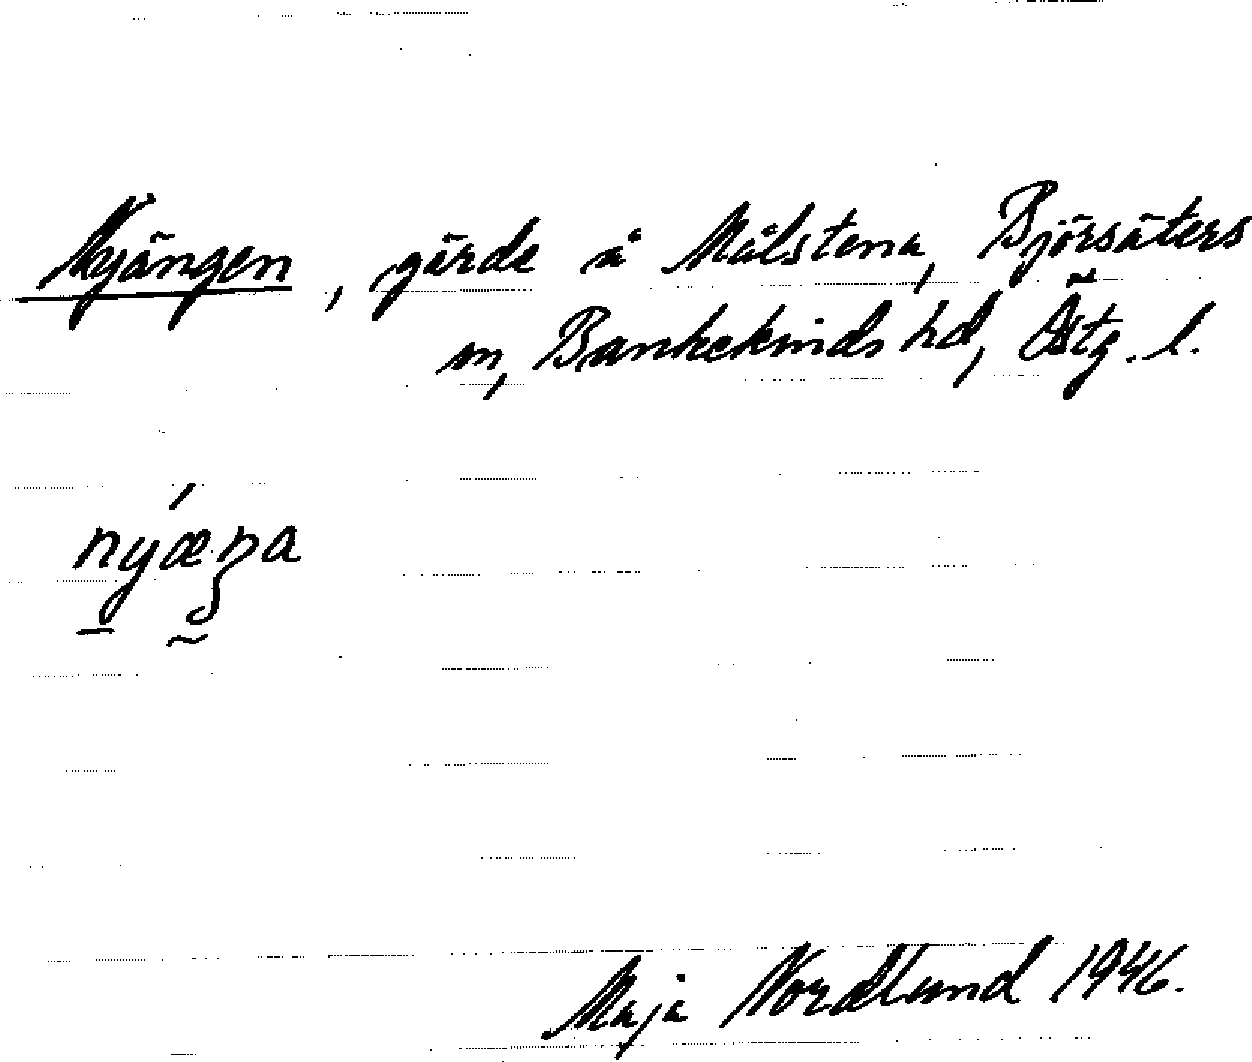 Nyängen, gärde å Målstena, Björsäters
sn, Bankekinds hd, Östg. l.
nýæŋa
Maja Nordlund 1946.